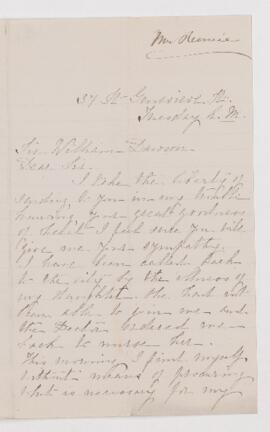 Mrs
37 St Genevieve St.
Tuesday A.M.
Sir William Dawson
Dear Sir
I take the liberty of
sending to you in my trouble
knowing your great goodness
of heart I feel sure you will
give me your sympathy.
I have been called back
to the city by the illness of
my daughter. She had not
been able to join me and
the Doctor ordered me
back to nurse her.
This morning I find myself
without means of procuring
what is necessary for my